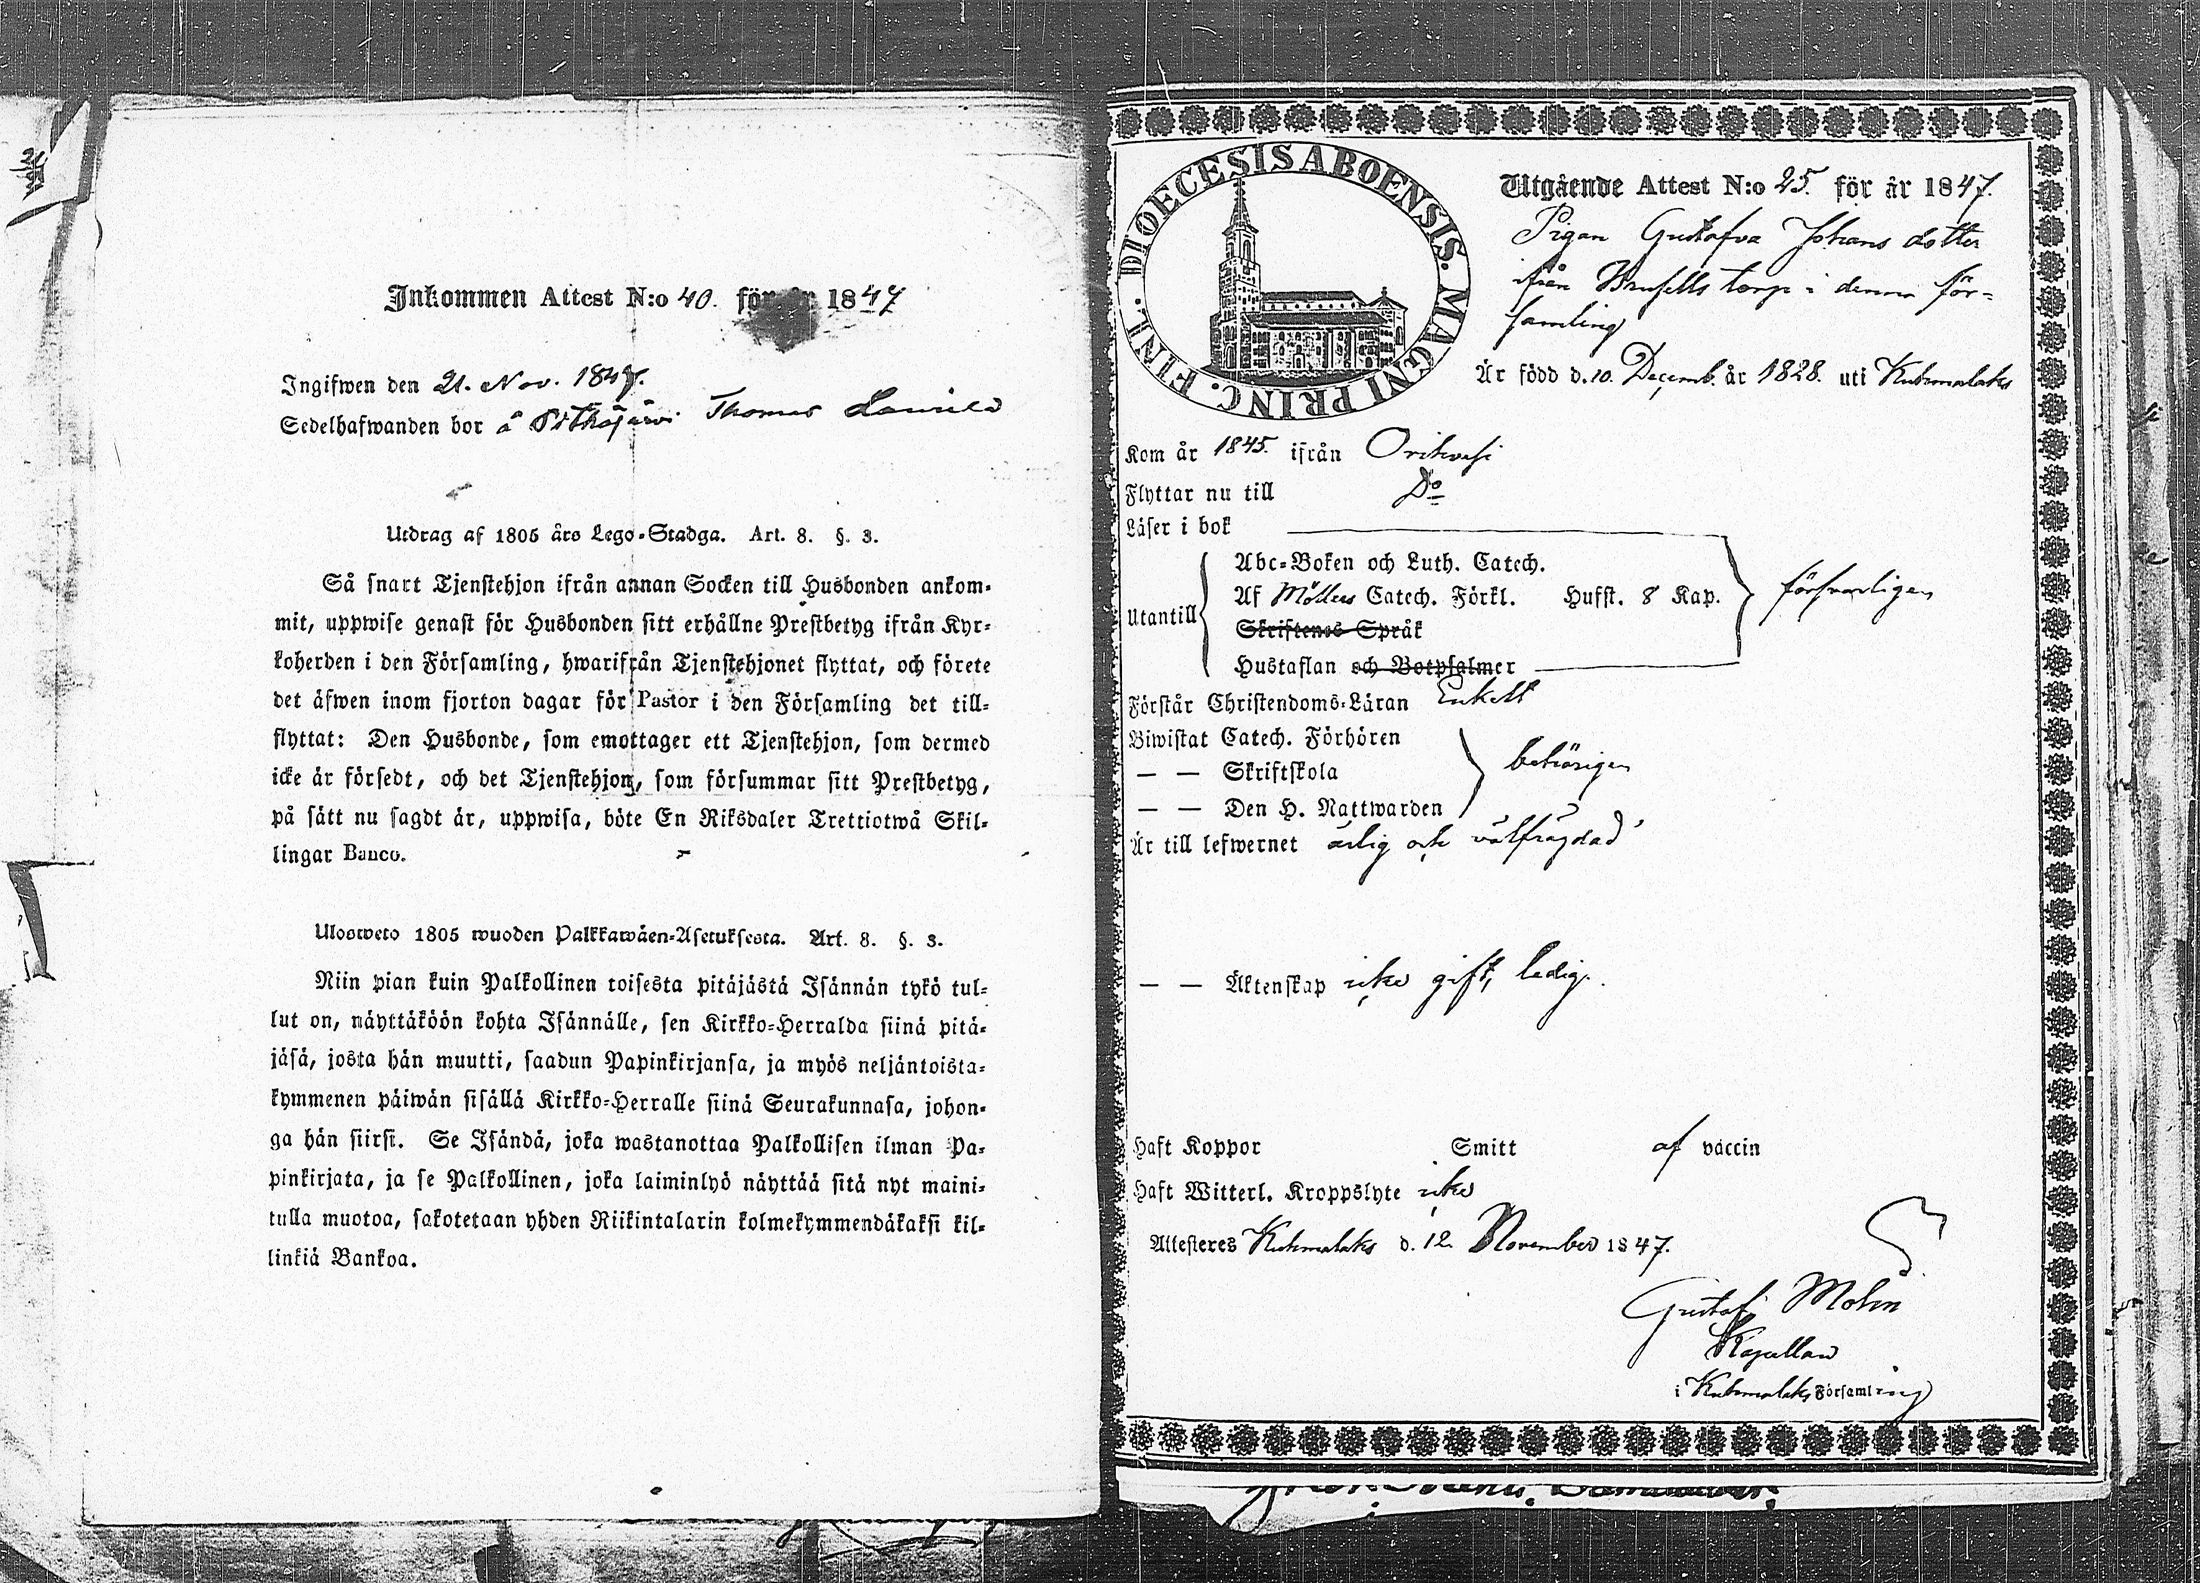 Inkommen Attest N:o 40. för år 1847
Ingifwen den 21. Nov. 1847.
Sedelhafwanden bor å Pitkäjärvi Thomas Laurila
Utdrag af 1805 års Lego-Stadga. Art. 8. §. 3.
Så snart Tjenstehjon ifrån annan Socken till Husbonden ankom-
mit, uppwise genast för Husbonden sitt erhållne Prestbetyg ifrån Kyr-
koherden i den Församling, hwarifrån Tjenstehjonet flyttat, och förete
det äfwen inom fjorton dagar för Pastor i den Församling det till-
flyttat: Den Husbonde, som emottager ett Tjenstehjon, som dermed
icke är försedt, och det Tjenstehjon, som försummar sitt Prestbetyg,
på sätt nu sagdt är, uppwisa, böte En Riksdaler Trettiotwå Skil-
lingar Banco.
Ulosweto 1805 wuoden Palkkawäen-Asetuksesta. Art. 8. §. 3.
Niin pian kuin Palkollinen toisesta pitäjästä Isännän tykö tul-
lut on, näyttäköön kohta Isännälle, sen Kirkko-Herralda siinä pitä-
jäsä, josta hän muutti, saadun Papinkirjansa, ja myös neljäntoista-
kymmenen päiwän sisällä Kirkko-Herralle siinä Seurakunnasa, johon-
ga hän siirsi. Se Isändä, joka wastanottaa Palkollisen ilman Pa-
pinkirjata, ja se Palkollinen, joka laiminlyö näyttää sitä nyt maini-
tulla muotoa, sakotetaan yhden Riikintalarin kolmekymmendäkaksi kil-
linkiä Bankoa.
DIOECESIS ABOENSIS. MAGNI PRINC. FINL.
Utgående Attest N:o 25. för år 1847.
Pigan Gustafva Johans dotter
ifrån torp i denna för-
samling
Är född d. 10. Decemb. år 1828. uti Kuhmalaks
Kom år 1845. ifrån Orihvesi
Flyttar nu till Do
Läser i bok
Abc-Boken och Luth. Catech.
Utantill Af Möllers Catech. Förkl. Husst. 8 Kap. försvarligen
Skriftenes Språk
Hustaflan och Botpsalmer
Förstår Christendoms-Läran Enkelt
Biwistat Catech. Förhören
— — Skriftskola behörigen
— — Den H. Nattwarden
Är till lefwernet ärlig och välfrägdad
— — Äktenskap icke gift, ledig.
Haft Koppor Smitt af vaccin
Haft Witterl. Kroppslyte icke
Attesteres Kuhmalaks d. 12 November 1847.
Gustaf Molin
Kapellan
i Kuhmalaks Församling